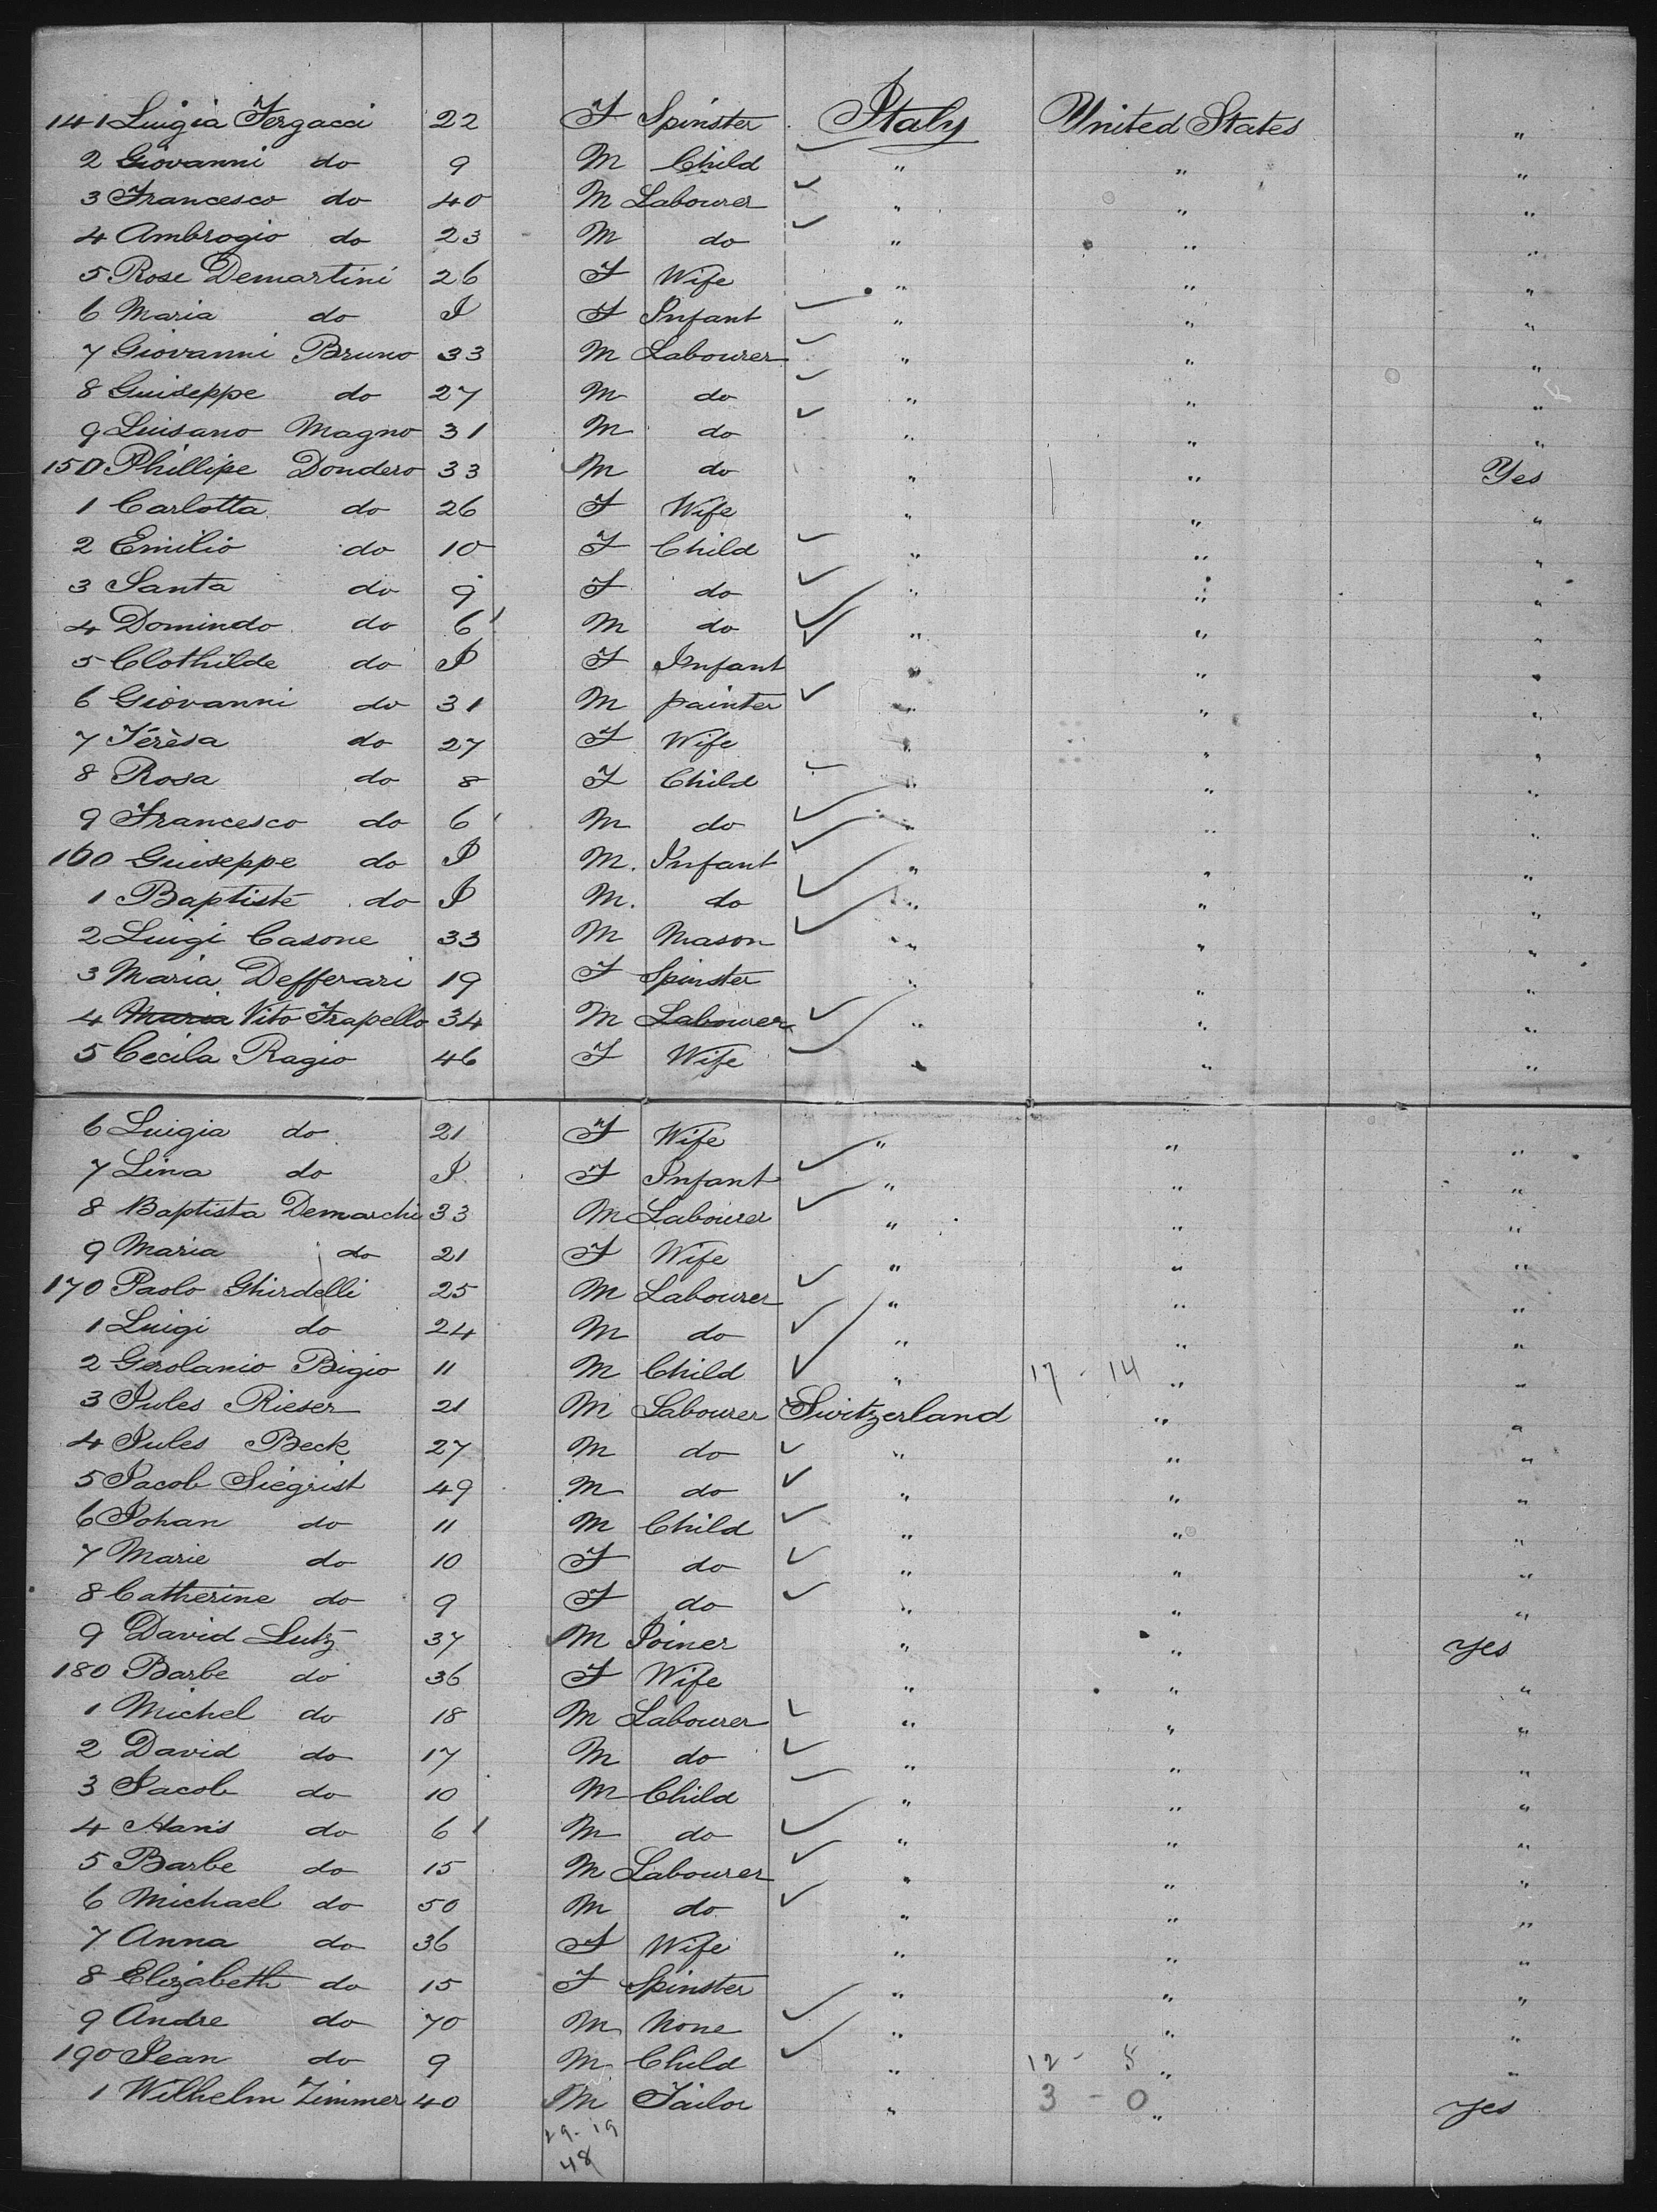 141 Luigia Fergacci 22 F Spinster Italy United States "
2 Giovanni do 9 M Child " " "
3 Francesco do 40 M Labourer " " "
4 Ambrogio do 23 M do " " "
5 Rose Demartini 26 F Wife " " "
6 Maria do I F Infant " " "
7 Giovanni Bruno 33 M Labourer " " "
8 Guiseppe do 27 M do " " "
9 Luisano Magno 31 M do " " "
150 Phillipe Dondero 33 M do " " Yes
1 Carlotta do 26 F Wife " " "
2 Emilio do 10 F Child " " "
3 Santa do 9 F do " " "
4 Domindo do 6 M do " " "
5 Clothilde do I F Infant " " "
6 Giovanni do 31 M painter " " "
7 Térèsa do 27 F Wife " " "
8 Rosa do 8 F Child " " "
9 Francesco do 6 M do " " "
160 Guiseppe do I M. Infant " " "
1 Baptiste do I M. do " " "
2 Luigi Casone 33 M Mason " " "
3 Maria Defferari 19 F Spinster " " "
4 Maria Vito Frapello 34 M Labourer " " "
5 Cecila Ragio 46 F Wife " " "
6 Luigia do 21 F Wife " " "
7 Lina do I F Infant " " "
8 Baptista Demarchi 33 M Labourer " " "
9 Maria do 21 F Wife " " "
170 Paolo Ghirdelli 25 M Labourer " " "
1 Luigi do 24 M do " " "
2 Gerolanio Bigio 11 M Child " 17 - 14 " "
3 Jules Rieser 21 M Labourer Switzerland " "
4 Jules Beck 27 M do " " "
5 Jacob Siegrist 49 M do " " "
6 Johan do 11 M Child " " "
7 Marie do 10 F do " " "
8 Catherine do 9 F do " " "
9 David Lutz 37 M Joiner " " yes
180 Barbe do 36 F Wife " " "
1 Michel do 18 M Labourer " " "
2 David do 17 M do " " "
3 Jacob do 10 M Child " " "
4 Hans do 6 M do " " "
5 Barbe do 15 M Labourer " " "
6 Michael do 50 M do " " "
7 Anna do 36 F Wife " " "
8 Elizabeth do 15 F Spinster " " "
9 Andre do 70 M None " " "
190 Jean do 9 M Child " 12 - 5 " "
1 Wilhelm Zimmer 40 M Tailor " 3 - 0 " yes
29 - 19
48